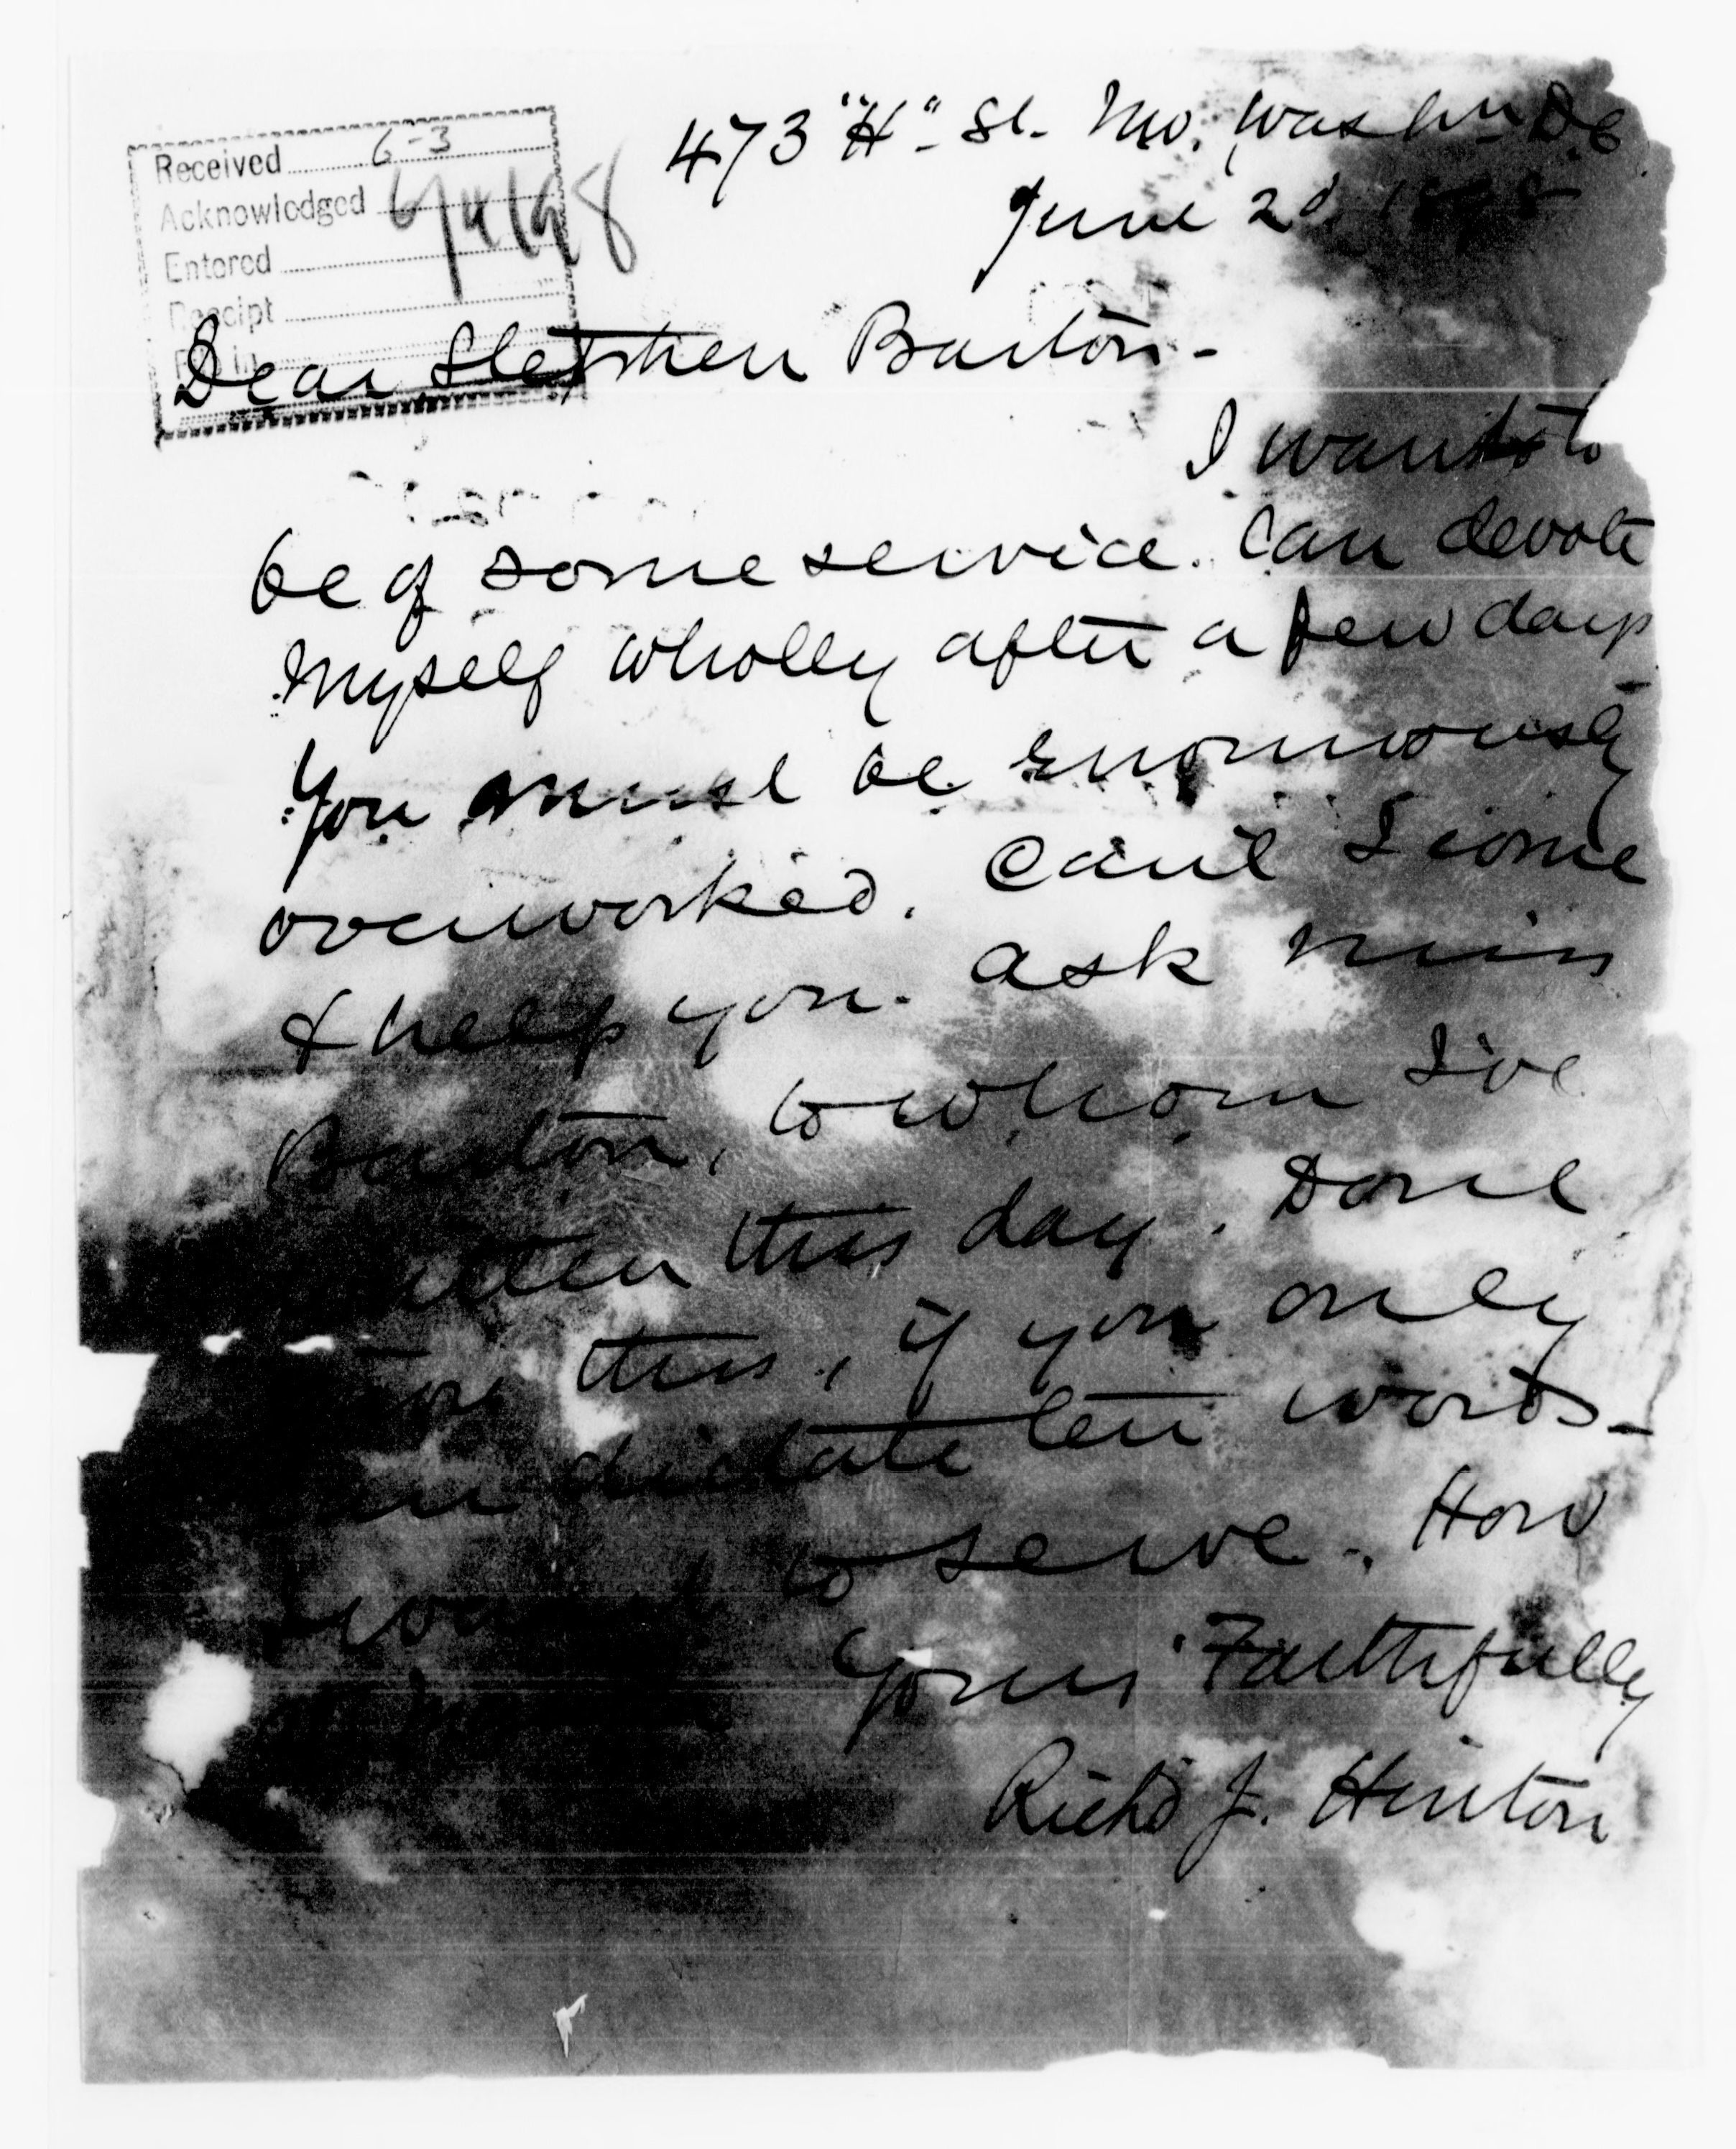 473 "H" St. Nw. Washn D.C
June 2d, 1898
Received 6-3
Acknowledged 6/4/98
Entered
Receipt
Dear Stephen Barton-
I want to
be of some service. Can devote
myself wholly after a few days
You must be enormously
overworked. Can't I come
& help you. Ask Miss
Barton, to whom I've
written this day. Dont
this, if you only
dictate ten words-
I want to serve. How
Yours Faithfully
Richd J. Hinton